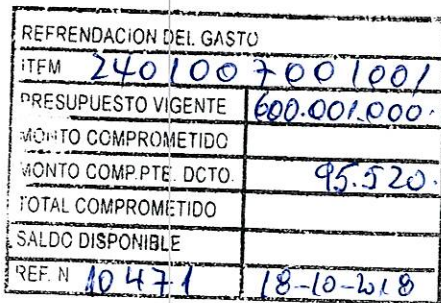 REFRENDACION DEL GASTO
ITEM 2401007001001
PRESUPUESTO VIGENTE 600.001.000.
MONTO COMPROMETIDO
MONTO COMP.PTE. DCTO. 95.520.
TOTAL COMPROMETIDO
SALDO DISPONIBLE
REF. N 10471 18-10-2018